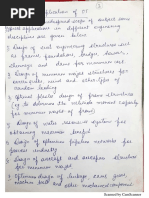 Application of OT
widespread scope of subject some
typical application in different engineering
disciplines are given below
1) Design of civil engineering structures such
as frames, foundations, bridges, towers,
chimneys and dams for minimum cost.
2) Design of minimum weight structures for
earth quake, wind and other types of
random loading.
3) Optimal plastic design of frame structures
(eg to determine the ultimate moment capacity
for minimum weight of frame)
4) Design of water resources systems for
obtaining maximum benefit
5) Design of optimum pipeline network for
process industry.
6) Design of aircraft and aerospace structure
for minimum weight
7) Optimum design of linkage, cams, gears,
machine tool and other mechanical component